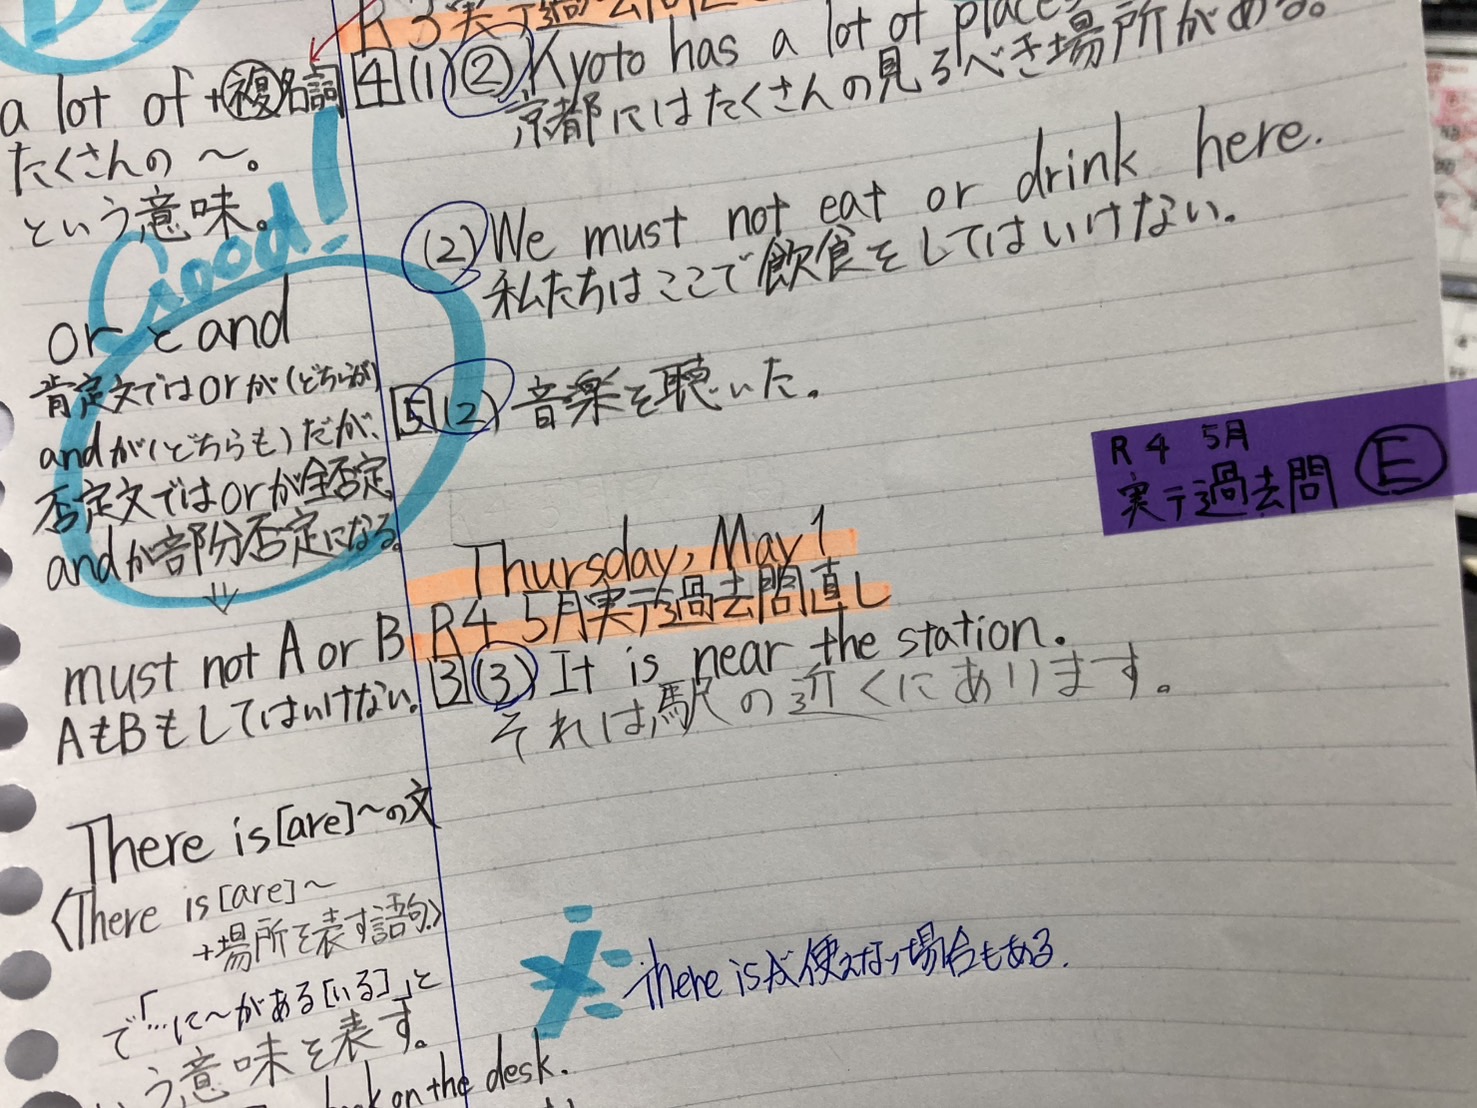 a lot of +複名詞
たくさんの 〜。
という意味。
Good!
or と and
肯定文ではorが(どちらか)
andが(どちらも)だが、
否定文ではorが全否定
andが部分否定になる。
must not A or B
AもBもしてはいけない。
There is[are]〜の文
〈There is[are]〜
+場所を表す語句〉
で「…に〜がある[いる]」と
いう意味を表す。
on the desk.
R3実テ過去問
4(1)② Kyoto has a lot of places
京都にはたくさんの見るべき場所がある。
(2) We must not eat or drink here.
私たちはここで飲食をしてはいけない。
5(2) 音楽を聴いた。
R4 5月
実テ過去問 E
Thursday, May 1
R4 5月実テ過去問直し
3(3) It is near the station.
それは駅の近くにあります。
there isが使えない場合もある.